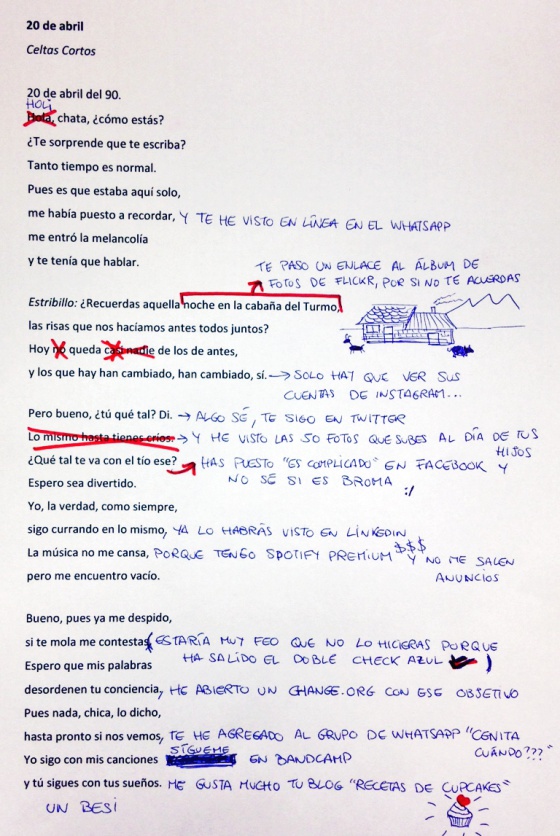 20 de abril
Celtas Cortos
20 de abril del 90.
HOLI
Hola, chata, ¿cómo estás?
¿Te sorprende que te escriba?
Tanto tiempo es normal.
Pues es que estaba aquí solo,
me había puesto a recordar, Y TE HE VISTO EN LÍNEA EN EL WHATSAPP
me entró la melancolía
y te tenía que hablar.
TE PASO UN ENLACE AL ÁLBUM DE
FOTOS DE FLICKR, POR SI NO TE ACUERDAS
Estribillo: ¿Recuerdas aquella noche en la cabaña del Turmo,
las risas que nos hacíamos antes todos juntos?
Hoy no queda casi nadie de los de antes,
y los que hay han cambiado, han cambiado, sí. → SOLO HAY QUE VER SUS
CUENTAS DE INSTAGRAM...
Pero bueno, ¿tú qué tal? Di. → ALGO SÉ, TE SIGO EN TWITTER
Lo mismo hasta tienes críos. → Y HE VISTO LAS 50 FOTOS QUE SUBES AL DÍA DE TUS
HIJOS
¿Qué tal te va con el tío ese? HAS PUESTO "ES COMPLICADO" EN FACEBOOK Y
NO SÉ SI ES BROMA
Espero sea divertido. :/
Yo, la verdad, como siempre,
sigo currando en lo mismo, YA LO HABRÁS VISTO EN LINKEDIN
La música no me cansa, PORQUE TENGO SPOTIFY PREMIUM $$$ Y NO ME SALEN
ANUNCIOS
pero me encuentro vacío.
Bueno, pues ya me despido,
si te mola me contestas (ESTARÍA MUY FEO QUE NO LO HICIERAS PORQUE
HA SALIDO EL DOBLE CHECK AZUL )
Espero que mis palabras
desordenen tu conciencia, HE ABIERTO UN CHANGE.ORG CON ESE OBJETIVO
Pues nada, chica, lo dicho,
hasta pronto si nos vemos, TE HE AGREGADO AL GRUPO DE WHATSAPP "CENITA
CUÁNDO???"
Yo sigo con mis canciones SÍGUEME EN BANDCAMP
y tú sigues con tus sueños. ME GUSTA MUCHO TU BLOG "RECETAS DE CUPCAKES"
UN BESI